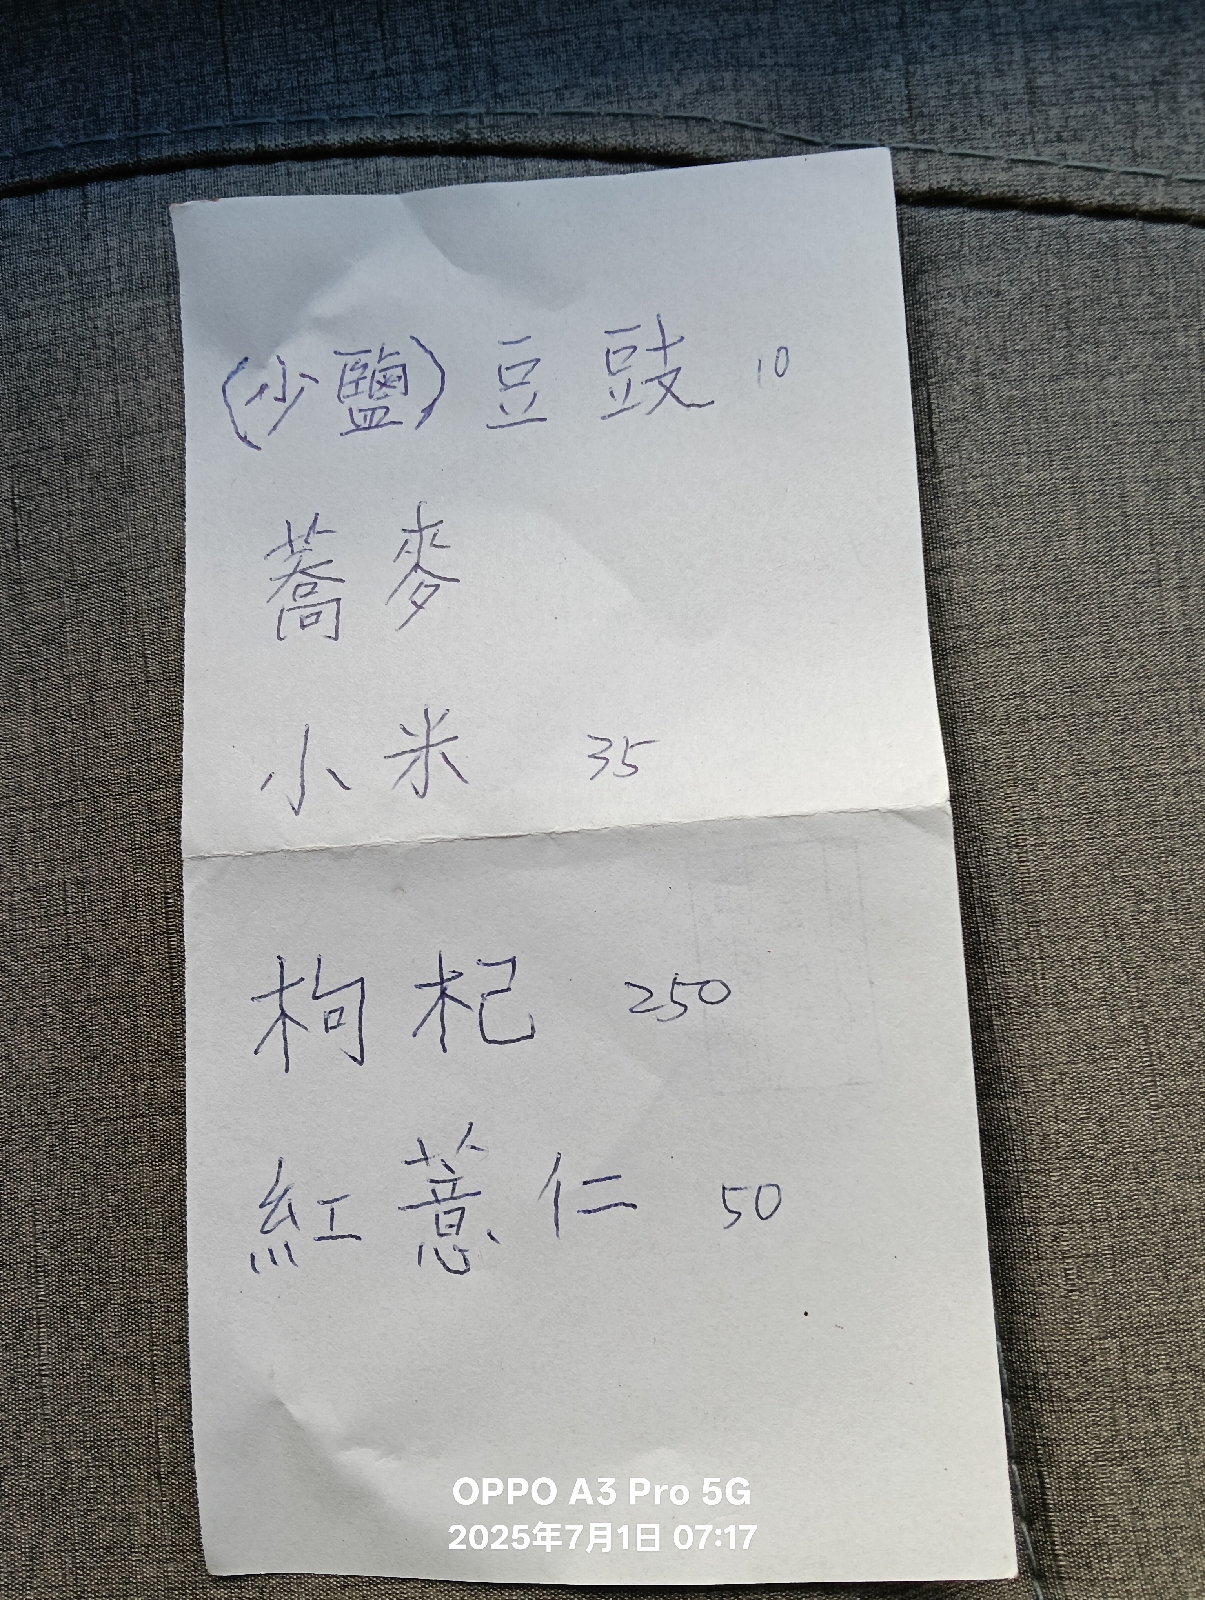 (少鹽)豆豉 10
蕎麥
小米 35
枸杞 250
紅薏仁 50
OPPO A3 Pro 5G
2025年7月1日 07:17